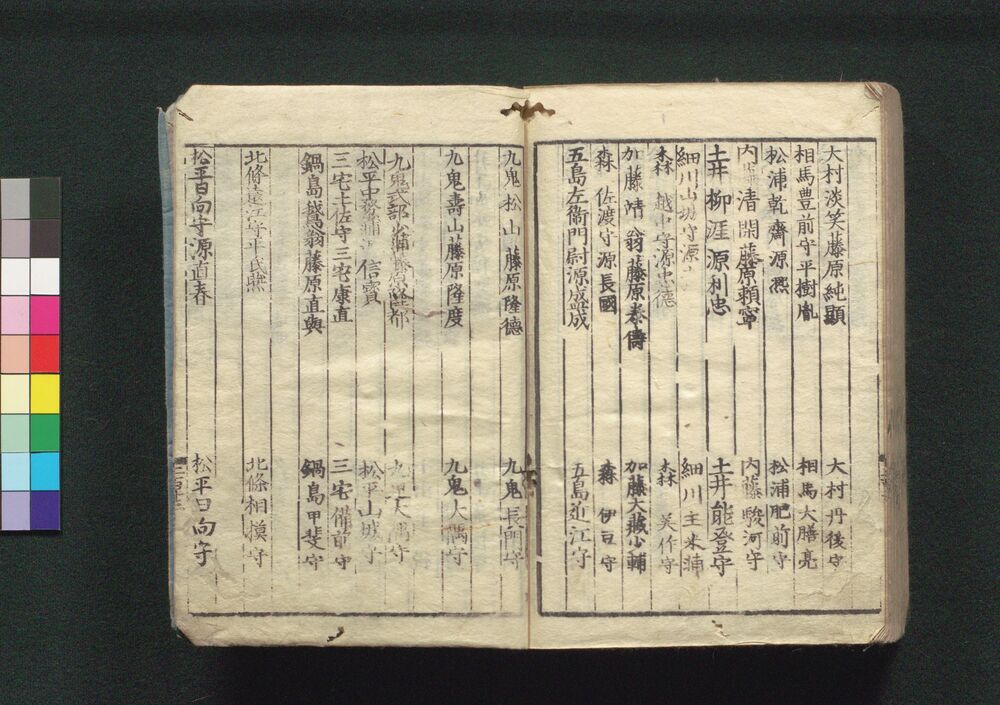 大村淡笑藤原純顯 大村丹後守
相馬豊前守平樹胤 相馬大膳亮
松浦乾齋源凞 松浦肥前守
内藤清閑藤原頼寧 内藤駿河守
土井柳涯源利忠 土井能登守
細川山城守源 細川主米
森越中守源忠德 森美作守
加藤靖翁藤原泰儔 加藤大藏少輔
森佐渡守源長國 森伊豆守
五島左衞門尉源盛成 五島近江守
九鬼松山藤原隆德 九鬼長門守
九鬼壽山藤原隆度 九鬼大隅守
九鬼式部少輔藤原隆都 九鬼大隅守
松平中務 信寶 松平山城守
三宅土佐守三宅康直 三宅備前守
鍋島鷲翁藤原直與 鍋島甲斐守
北條遠江守平氏 北條相模守
松平日向守源直春 松平日向守